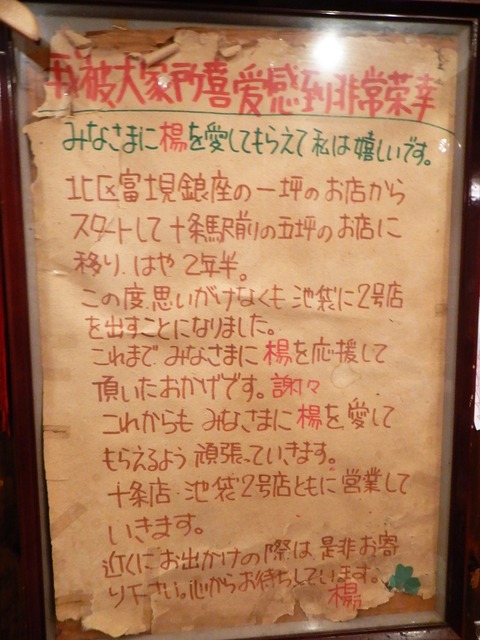 我被大家所喜爱感到非常荣幸
みなさまに楊を愛してもらえて私は嬉しいです。
北区富士見銀座の一坪のお店から
スタートして十条駅前の五坪のお店に
移り、はや2年半。
この度思いがけなくも池袋に2号店
を出すことになりました。
これまでみなさまに楊を応援して
頂いたおかげです。謝々
これからもみなさまに楊を愛して
もらえるよう頑張っていきます。
十条店・池袋2号店ともに営業して
いきます。
近くにお出かけの際は是非お寄
り下さい。心からお待ちしています。
楊